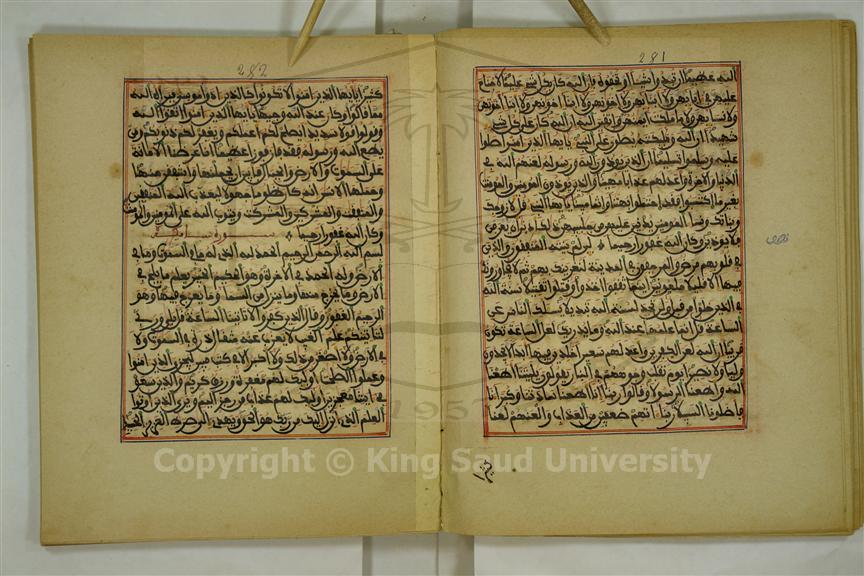 281
الله عظيما ان تبدوا شيئا او تخفوه فان الله كان بكل شيء عليما لا جناح
عليهن في ءابايهن ولا ابنايهن ولا اخونهن ولا ابنا اخونهن ولا ابنا اخوتهن
ولا نسايهن ولا ما ملكت ايمنهن واتقين الله ان الله كان على كل شيء
شهيدا ان الله وملئكته يصلون على النبي يايها الذين امنوا صلوا
عليه وسلموا تسليما ان الذين يوذون الله ورسوله لعنهم الله في
الدنيا والاخرة واعد لهم عذابا مهينا والذين يوذون المومنين والمومنت
بغير ما اكتسبوا فقد احتملوا بهتنا واثما مبينا يايها النبي قل لازوجك
وبناتك ونسا المومنين يدنين عليهن من جلبيبهن ذلك ادنى ان يعرفن
فلا يوذين وكان الله غفورا رحيما لين لم ينته المنفقون والذين
في قلوبهم مرض والمرجفون في المدينة لنغرينك بهم ثم لا يجاورونك
فيها الا قليلا ملعونين اينما ثقفوا اخذوا وقتلوا تقتيلا سنة الله
في الذين خلوا من قبل ولن تجد لسنة الله تبديلا يسلك الناس عن
الساعة قل انما علمها عند الله وما يدريك لعل الساعة تكون
قريبا ان الله لعن الكفرين واعد لهم سعيرا خلدين فيها ابدا لا يجدون
وليا ولا نصيرا يوم تقلب وجوههم في النار يقولون يليتنا اطعنا
الله واطعنا الرسولا وقالوا ربنا انا اطعنا سادتنا وكبرانا
فاضلونا السبيلا ربنا اتهم ضعفين من العذاب والعنهم لعنا
282
كثيرا يايها الذين امنوا لا تكونوا كالذين اذوا موسى فبراه الله
مما قالوا وكان عند الله وجيها يايها الذين امنوا اتقوا الله
وقولوا قولا سديدا يصلح لكم اعملكم ويغفر لكم ذنوبكم ومن
يطع الله ورسوله فقد فاز فوزا عظيما انا عرضنا الامانة
على السموت والارض والجبال فابين ان يحملنها واشفقن منها
وحملها الانسن انه كان ظلوما جهولا ليعذب الله المنفقين
والمنفقت والمشركين والمشركت ويتوب الله على المومنين والمومنت
وكان الله غفورا رحيما
بسم الله الرحمن الرحيم الحمد لله الذي له ما في السموت وما في
الارض وله الحمد في الاخرة وهو الحكيم الخبير يعلم ما يلج في
الارض وما يخرج منها وما ينزل من السما وما يعرج فيها وهو
الرحيم الغفور وقال الذين كفروا لا تاتينا الساعة قل بلى وربي
لتاتينكم علم الغيب لا يعزب عنه مثقال ذرة في السموت ولا
في الارض ولا اصغر من ذلك ولا اكبر الا في كتب مبين ليجزي الذين امنوا
وعملوا الصلحت اوليك لهم مغفرة ورزق كريم والذين سعو
في ايتنا معجزين اوليك لهم عذاب من رجز اليم ويرى الذين اوتوا
العلم الذي انزل اليك من ربك هو الحق ويهدي الى صرط العزيز الحميد
1957
Copyright © King Saud University